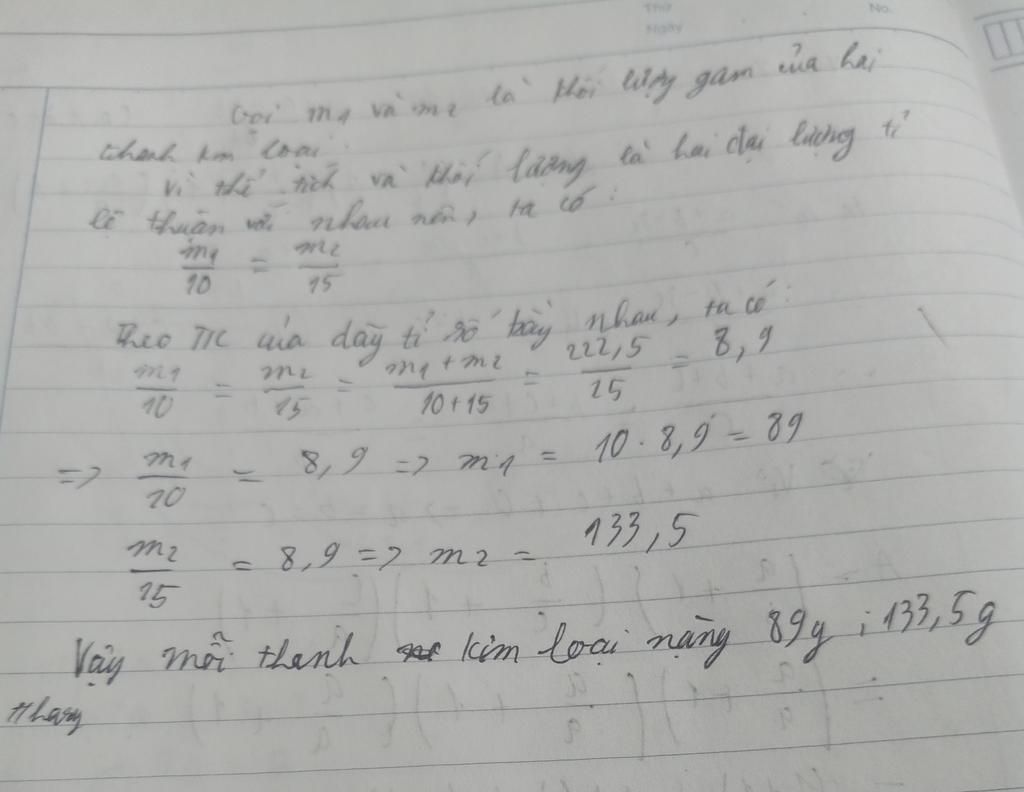 Thứ
Ngày
No.
Gọi m1 và m2 là khối lượng gam của hai
thanh kim loại.
Vì thể tích và khối lượng là hai đại lượng tỉ
lệ thuận với nhau nên, ta có:
m1/10 = m2/15
Theo T/C của dãy tỉ số bằng nhau, ta có:
m1/10 = m2/15 = m1 + m2/10+15 = 222,5/25 = 8,9
=> m1/10 = 8,9 => m1 = 10 . 8,9 = 89
m2/15 = 8,9 => m2 = 133,5
Vậy mỗi thanh kim loại nặng 89g ; 133,5g